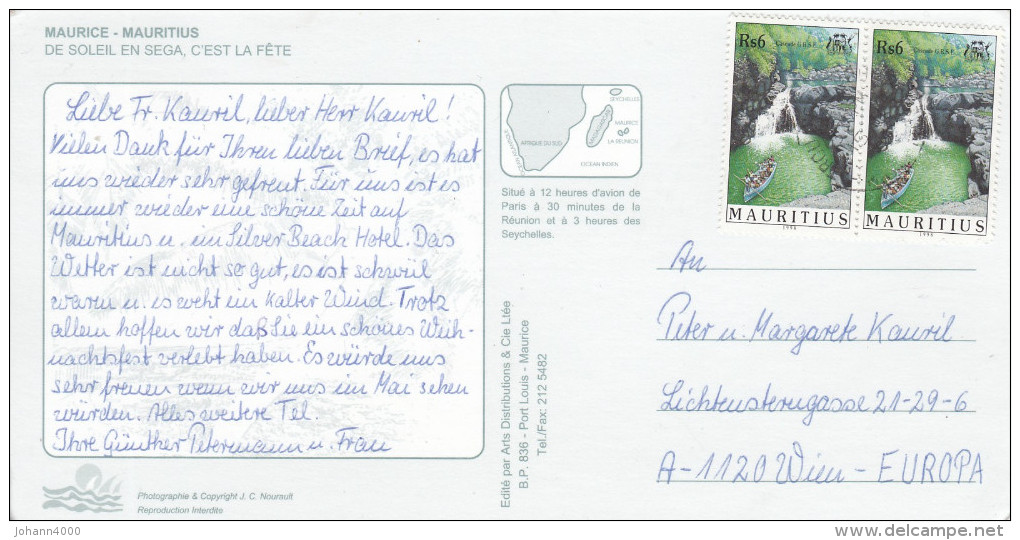 MAURICE - MAURITIUS
DE SOLEIL EN SEGA, C'EST LA FÊTE
Liebe Fr. Kauril, lieber Herr Kauril!
Vielen Dank für Ihren lieben Brief, es hat
uns wieder sehr gefreut. Für uns ist es
immer wieder eine schöne Zeit auf
Mauritius u. im Silver Beach Hotel. Das
Wetter ist nicht so gut, es ist schwül
warm u. es weht ein kalter Wind. Trotz
allem hoffen wir daß Sie ein schönes Weih-
nachtsfest verlebt haben. Es würde uns
sehr freuen wenn wir uns im Mai sehen
würden. Alles weitere Tel.
Ihre Günther Petermann u. Frau
Photographie & Copyright J. C. Nourault
Reproduction Interdite
SEYCHELLES
MADAGASCAR
MAURICE
LA REUNION
AFRIQUE DU SUD
OCEAN INDIEN
Situé à 12 heures d'avion de
Paris à 30 minutes de la
Réunion et à 3 heures des
Seychelles.
Edité par Arts Distributions & Cie Ltée
B.P. 836 - Port Louis - Maurice
Tel./Fax: 212 5482
Rs6
Cascade G.R.S.E.
MAURITIUS
1998
Rs6
Cascade G.R.S.E.
MAURITIUS
1998
An
Peter u. Margarete Kauril
Lichtensterngasse 21-29-6
A-1120 Wien - EUROPA
johann4000